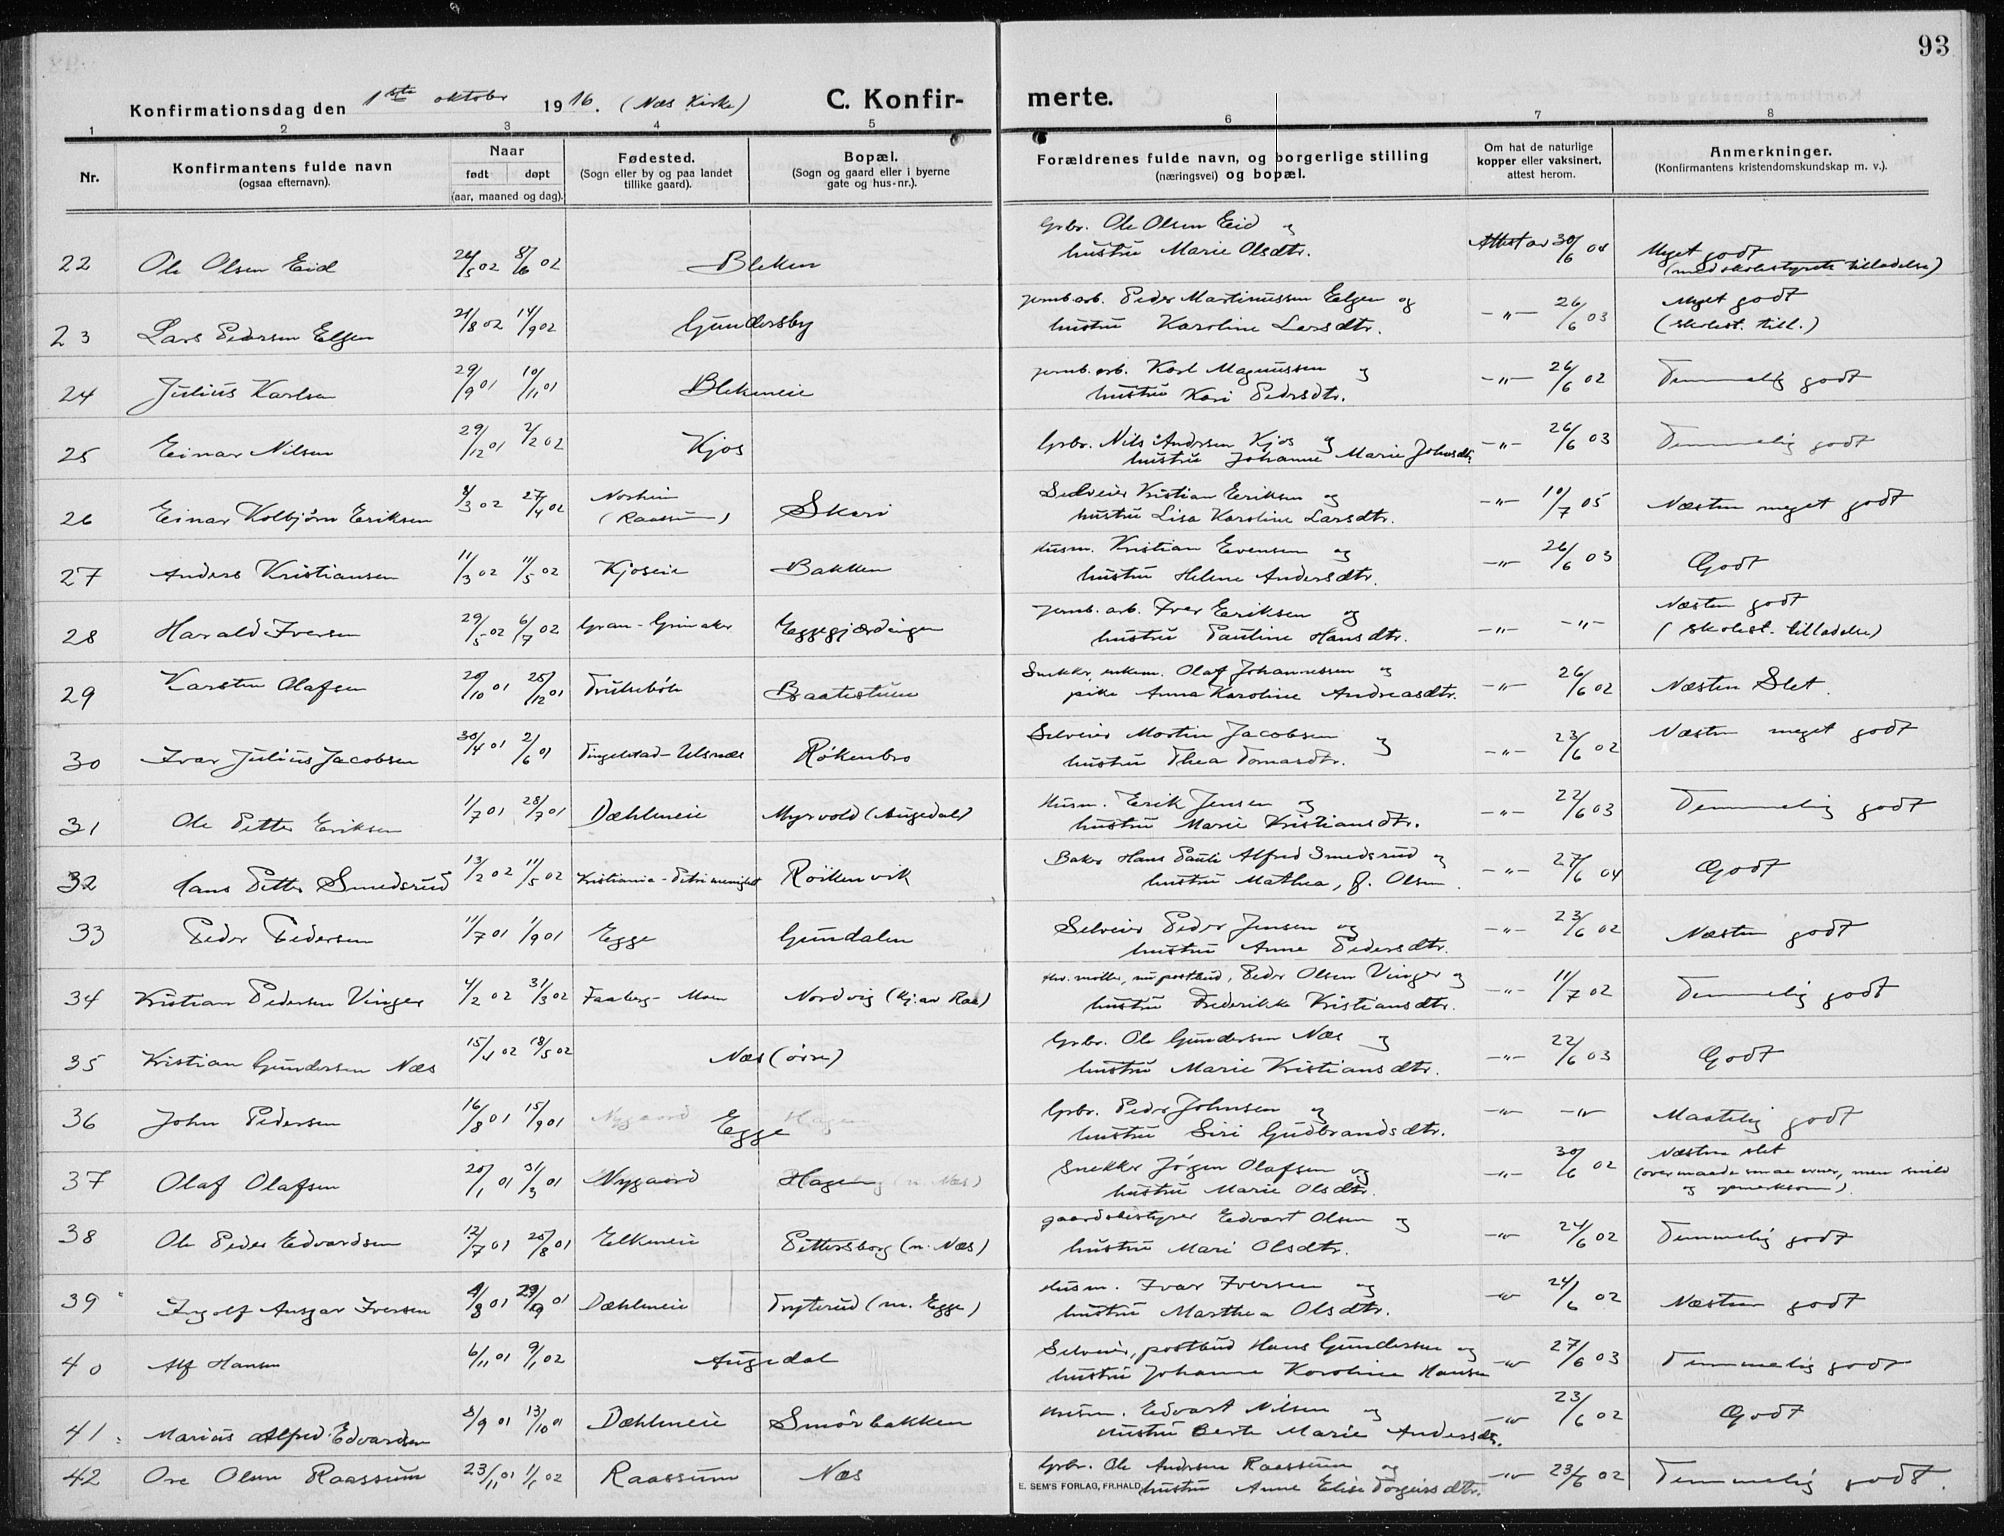 93
Konfirmationsdag den 1ste oktober 1916. (Næs Kirke) C. Konfir- merte.
1 2 3 4 5 6 7 8
Nr.
Konfirmantens fulde navn
(ogsaa efternavn).
Naar
født døpt
(aar, maaned og dag).
Fødested.
(Sogn eller by og paa landet
tillike gaard).
Bopæl.
(Sogn og gaard eller i byerne
gate og hus-nr.).
Forældrenes fulde navn, og borgerlige stilling
(næringsvei) og bopæl.
Om hat de naturlige
kopper eller vaksinert,
attest herom.
Anmerkninger.
(Konfirmantens kristendomskundskap m. v.).
Grbr. Ole Olsen Eid og
22 Ole Olsen Eid 26/5 02 8/6 02 Bleken hustru Marie Olsdtr. Attest av 30/6 04 Meget godt
(med skolestyrets tilladelse)
jernb.arb. Peder Martinussen Elgen og
23 Lars Pedersen Elgen 21/8 02 14/9 02 Gundersby hustru Karoline Larsdtr. -"- 26/6 03 Meget godt
(skolest. till.)
jernb.arb. Karl Magnussen og
24 Julius Karlsen 29/9 01 10/11 01 Blekeneie hustru Kari Pedrsdtr. -"- 26/6 02 Temmelig godt
Grbr. Nils Andersen Kjos og
25 Einar Nilsen 29/12 01 2/2 02 Kjos hustru Johanne Marie Johnsdtr. -"- 26/6 03 Temmelig godt
Selveier Kristian Eriksen og
26 Einar Kolbjørn Eriksen 8/3 02 27/4 02 Norheim (Raassum) Skari hustru Lisa Karoline Larsdtr. -"- 10/7 05 Næsten meget godt
Husm. Kristian Evensen og
27 Anders Kristiansen 11/3 02 11/5 02 Kjoseie Bakken hustru Helene Andersdtr. -"- 26/6 03 Godt
jernb. arb. Iver Eriksen og
28 Harald Iversen 29/5 02 6/7 02 Gran - Grinaker Eggegjærdingen hustru Pauline Hansdtr. -"- -"- Næsten godt
(skolest. tilladelse)
Snekker, enkem. Olaf Johannessen og
29 Karsten Olafsen 20/10 01 25/12 01 Baatstuen pike Anna Karoline Andreasdtr. -"- 26/6 02 Næsten Slet.
Selveier Martin Jacobsen og
30 Ivar Julius Jacobsen 30/4 01 2/6 01 Tingelstad - Ulsnæs Røkenbro hustru Thea Tomasdtr. -"- 23/6 02 Næsten meget godt
Husm. Erik Jensen og
31 Ole Petter Eriksen 1/7 01 28/7 01 Dæhleneie Myrvold (Augedal) hustru Marie Kristiansdtr. -"- 22/6 03 Temmelig godt
Baker Hans Pauli Alfred Smedsrud og
32 Hans Petter Smedsrud 13/2 02 11/5 02 Kristiania - Petri menighet Røikenvik hustru Mathea, f. Olsen. -"- 27/6 04 Godt
Selveier Peder Jensen og
33 Peder Pedersen 11/7 01 1/9 01 Egge Gundalen hustru Anne Pedersdtr. -"- 23/6 02 Næsten godt
møller, nu postbud, Peder Olsen Vinger og
34 Kristian Pedersen Vinger 4/2 02 31/3 02 Faaberg - Moen Nordvig (Kj. av Raa) hustru Frederikke Kristiansdtr. -"- 11/7 02 Temmelig godt
Grbr. Ole Gundersen Næs og
35 Kristian Gundersen Næs 15/4 02 18/5 02 Næs (øvre) hustru Marie Kristiansdtr. -"- 22/6 03 Godt
Grbr. Peder Johnsen og
36 John Pedersen 16/8 01 15/9 01 Nygaard Egge Hagen hustru Siri Gudbrandsdtr. -"- -"- Maatelig godt
Snekker Jørgen Olafsen og
37 Olaf Olafsen 20/1 01 31/3 01 Nygaard Hagen (n. Næs) hustru Marie Olsdtr. -"- 30/6 02 Næsten slet
(overmaade smaa evner, men snild
og opmerksom).
gaardsbestyrer Edvart Olsen og
38 Ole Peder Edvardsen 12/7 01 25/8 01 Elkeneie Pettersborg (n. Næs) hustru Mari Olsdtr. -"- 24/6 02 Temmelig godt
Husm. Ivar Iversen og
39 Ingolf Ansgar Iversen 4/8 01 29/9 01 Dæhleneie Tryterud (m. Egge) hustru Marthea Olsdtr. -"- 24/6 02 Næsten godt
Selveier, postbud Hans Gundersen og
40 Alf Hansen 6/11 01 9/1 02 Augedal hustru Johanne Karoline Hansen -"- 27/6 03 Temmelig godt
Husm. Edvart Nilsen og
41 Marius Alfred Edvardsen 8/9 01 13/10 01 Dæhleneie Smørbakken hustru Berte Marie Andersdtr. -"- 23/6 02 Godt
Grbr. Ole Andersen Raassum og
42 Ove Olsen Raassum 23/11 01 1/1 02 Raassum Næs hustru Anne Elise Torgeirsdtr. -"- 23/6 02 Temmelig godt.
E. SEM'S FORLAG, FR.HALD